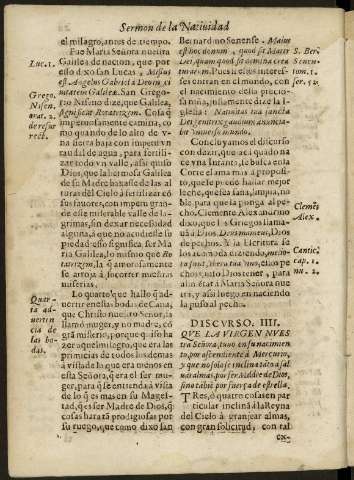 Sermon de la Natiuidad
el milagro, antes de tiempo.
Fue Maria Señora nuestra
Galilea de nacion, que por
esso dixo san Lucas, Missus
est Angelus Gabriel a Deo in ci
uitatem Galileæ. San Grego-
rio Niseno dize, que Galilea,
significat Rotatizem. Cosa q̃
impetuosamente camina, co
mo quando de lo alto de v-
na sierra baja con impetu vn
raudal de agua, para fertili-
zar todo vn valle, assi quiso
Dios, que la hermosa Galilea
de su Madre baxasse de las al
turas del Cielo à fertilizar cõ
sus fauores, con impetu gran-
de este miserable valle de la-
grimas, sin dexar necessidad
alguna, à que no acudiesse su
piedad: esso significa ser Ma
ria Galilea, lo mismo que Ro
tatizem, la q̃ amorosamente
se arroja à socorrer nuestras
miserias.
Lo quarto que hallo q̃ ad
uertir en estas bodas de Cana,
que Christo nuestro Señor, la
llamò muger, y no madre, cõ
grã misterio, porque quiso ha
zer aquel milagro, q̃ era las
primicias de todos los demas
à vista de lo que era menos en
esta Señora, q̃ era el ser mu-
ger, para q̃ se entienda, à vista
de lo q̃ es mas en su Magef-
tad, q̃ es ser Madre de Dios, q̃
cosas harà tã prodigiosas por
su ruego, que como dixo san
Luc. 1.
Grego.
Nisen.
orat. 2.
de resur
rect.
Quar-
ta ad-
uerten
cia de
las bo-
das.
Bernardino Senense. Maius
est hoc donum, quod sit Mater
Dei, quam quod sit domina crea
turarum. Pues si estos interes-
ses entran en el mundo, con
el nacimiento desta precio-
sa niña, justamente dize la I-
glesia: Natiuitas tua sancta
Dei genitrix gaudium annuncia-
uit vniuerso mundo.
Concluyamos el discurso
con dezir, que acà quando na
ce vna Infanta, se busca en la
Corte el ama mas à proposi-
to, que le pueda hazer mejor
leche, que sea sana, limpia, no
ble, para que la ponga al pe-
cho. Clemente Alexandrino
dixo, que los Griegos llama-
uan à Dios, Deus mameus, Dios
de pechos. Y la Escritura se
los acomoda diziendo, melio-
ra sunt vbera tua vino, estos pe
chos gustò Dios tener, para
alimẽtar à Maria Señora nue
stra, y assi luego en naciendo
la puso al pecho.
S. Ber.
Senens.
tom. 1.
ser. 52.
Clemẽs
Alex.
Cantic.
cap. 1.
nu. 2.
DISCVRSO. IIII.
QVE LA VIRGEN NVES
tra Señora, tuuo en su nacimien
to, por ascendiente à Mercurio,
y que no solo se inclinò toda à sal
uar almas, por ser Madre de Dios,
sino tãbiẽ por fuerça de estrella.
TRes, ò quatro cosas en par
ticular inclinã à la Reyna
del Cielo à grangear almas,
con gran solicitud, con tal
ex-